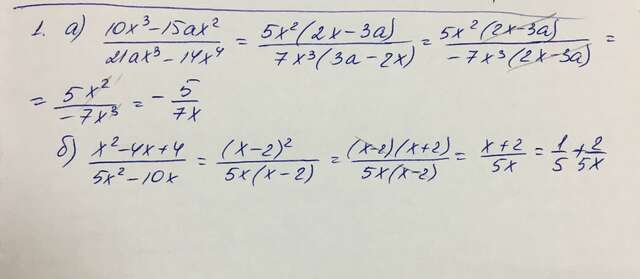 1. а) (10x³-15ax²)/(21ax³-14x⁴) = (5x²(2x-3a))/(7x³(3a-2x)) = (5x²(2x-3a))/(-7x³(2x-3a)) =
= (5x²)/(-7x³) = -5/(7x)
б) (x²-4x+4)/(5x²-10x) = (x-2)²/(5x(x-2)) = ((x-2)(x+2))/(5x(x-2)) = (x+2)/(5x) = 1/5 + 2/(5x)